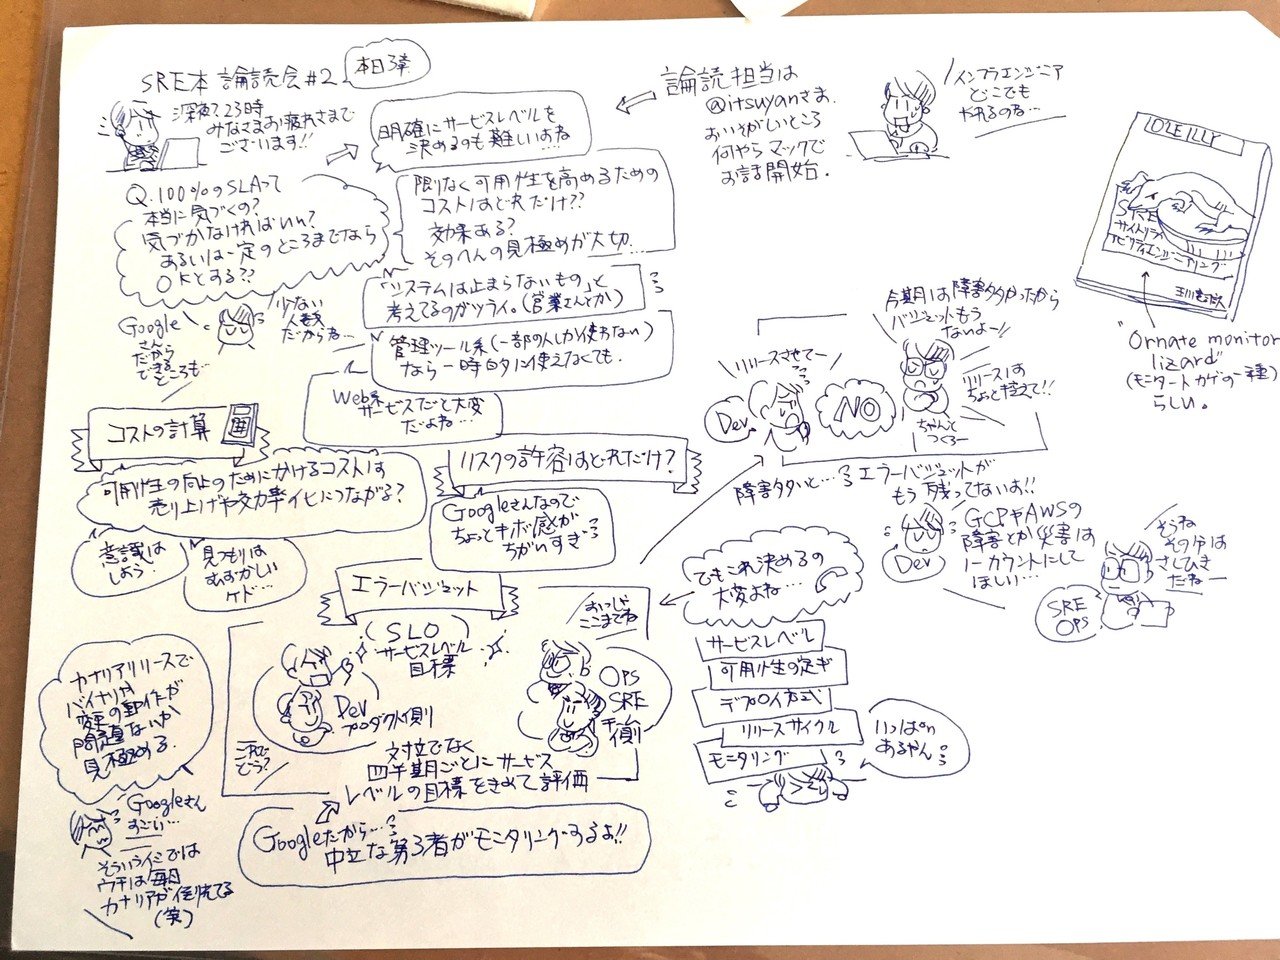 SRE本 論読会 #2
本日3章
深夜?23時
みなさまお疲れさまで
ございます!!
明確にサービスレベルを
決めるのも難しいよね…
論読担当は
@itsuyanさま
おいそがしいところ
何やらマックで
お話開始.
インフラエンジニア
どこでも
やれるのね…
Q.100%のSLAって
本当に気づくの?
気づかなければいい?
あるいは一定のところまでなら
OKとする??
限りなく可用性を高めるための
コストはどれだけ??
効果ある?
そのへんの見極めが大切…
「システムは止まらないもの」と
考えてるのがツライ。(営業さんとか)
Google
さん
だから
できる
ところも…
少ない
人数
だからね…
管理ツール系(一部の人しか使わない)
なら一時的に使えなくても.
Web系
サービスだと大変
だよね…
コストの計算
可用性の向上のためにかけるコストは
売り上げや効率化につながる?
意識は
しよう.
見つもりは
むずかしい
ケド…
リスクの許容はどれだけ?
Googleさんなので
ちょっとキボ感が
ちがいすぎ
エラーバジェット
SLO
サービスレベル
目標
Dev
プロダクト側
これで
どう?
よいしょ
ここまでね
OPS
SRE
側
対立でなく
四半期ごとにサービス
レベルの目標をきめて評価
Googleだから…
中立な第3者がモニタリングするよ!!
カナリアリリースで
バイナリや
変更の動作が
問題ないか
見極める.
Googleさん
すごい…
そういうイミでは
ウチは毎日
カナリアが倒れてる
(笑)
O'REILLY
SRE
サイトリライ
アビリティエンジニアリング
"Ornate monitor
lizard"
(モニタートカゲの一種)
らしい。
今期は障害多かったから
バジェットもう
ないよー!!
リリースさせてー
Dev
NO
リリースは
ちょっと控えて!!
ちゃんと
つくろー
障害多いと…
エラーバジェットが
もう残ってないよ!!
Dev
GCPやAWSの
障害とか災害は
ノーカウントにして
ほしい…
そうね
その分は
さしひき
だねー
SRE
OPS
でもこれ決めるの
大変よね…
サービスレベル
可用性の定ギ
デプロイ方式
リリースサイクル
モニタリング
いっぱい
あるやん